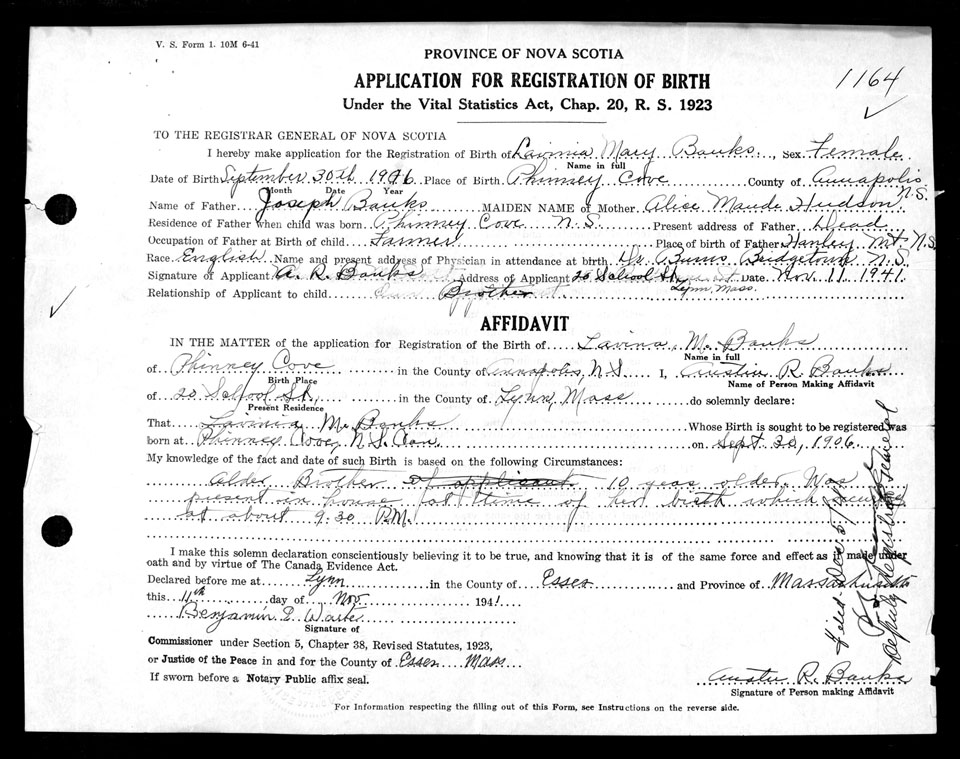 V. S. Form 1. 10M 6-41
PROVINCE OF NOVA SCOTIA
APPLICATION FOR REGISTRATION OF BIRTH
1164
Under the Vital Statistics Act, Chap. 20, R. S. 1923
TO THE REGISTRAR GENERAL OF NOVA SCOTIA
I hereby make application for the Registration of Birth of Lavinia Mary Banks, Sex Female
Name in full
Date of Birth September 30th 1906 Place of Birth Phinney Cove County of Annapolis N.S.
Month Date Year
Name of Father Joseph Banks MAIDEN NAME of Mother Alice Maude Hudson
Residence of Father when child was born Phinney Cove N.S. Present address of Father Dead
Occupation of Father at Birth of child Farmer Place of birth of Father Hanley Mt N.S.
Race English Name and present address of Physician in attendance at birth Dr. Bridgetown N.S.
Signature of Applicant A. R. Banks Address of Applicant 20 School St. Lynn, Mass. Date Nov. 11 1941
Relationship of Applicant to child Brother
AFFIDAVIT
IN THE MATTER of the application for Registration of the Birth of Lavina M. Banks
Name in full
of Phinney Cove in the County of Annapolis, N.S. I, Austin R. Banks
Birth Place Name of Person Making Affidavit
of 20 School St., in the County of Lynn, Mass do solemnly declare:
Present Residence
That Lavinia M. Banks Whose Birth is sought to be registered was
born at Phinney Cove, N.S. Can. on Sept 30, 1906
My knowledge of the fact and date of such Birth is based on the following Circumstances:
Older Brother of applicant 10 years older. Was
present in house at time of her birth which occurred
at about 9.30 P.M.
I make this solemn declaration conscientiously believing it to be true, and knowing that it is of the same force and effect as if made under
oath and by virtue of The Canada Evidence Act.
Declared before me at Lynn in the County of Essex and Province of Massachusetts
this 11th day of Nov. 1941
Benjamin E.
Signature of
Commissioner under Section 5, Chapter 38, Revised Statutes, 1923,
or Justice of the Peace in and for the County of Essex Mass
If sworn before a Notary Public affix seal.
Austin R. Banks
Signature of Person making Affidavit
For Information respecting the filling out of this Form, see Instructions on the reverse side.
Filed Dec. 5/41
Deputy Registrar General